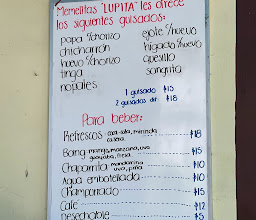 Memelitas "LUPITA" les ofrece
los siguientes guisados:
papa c/chorizo ejote c/huevo
chicharrón higado c/huevo
huevo c/chorizo quesillo
tinga sangrita
nopales
1 guisado $15
2 guisados dif. $18
Para beber:
Refrescos coca-cola, mirinda $18
Boing mango, manzana, uva $15
guayaba, fresa
Chaparrita mandarina $10
uva, piña
Agua embotellada $10
Champurrado $15
Café $12
Desechable $5